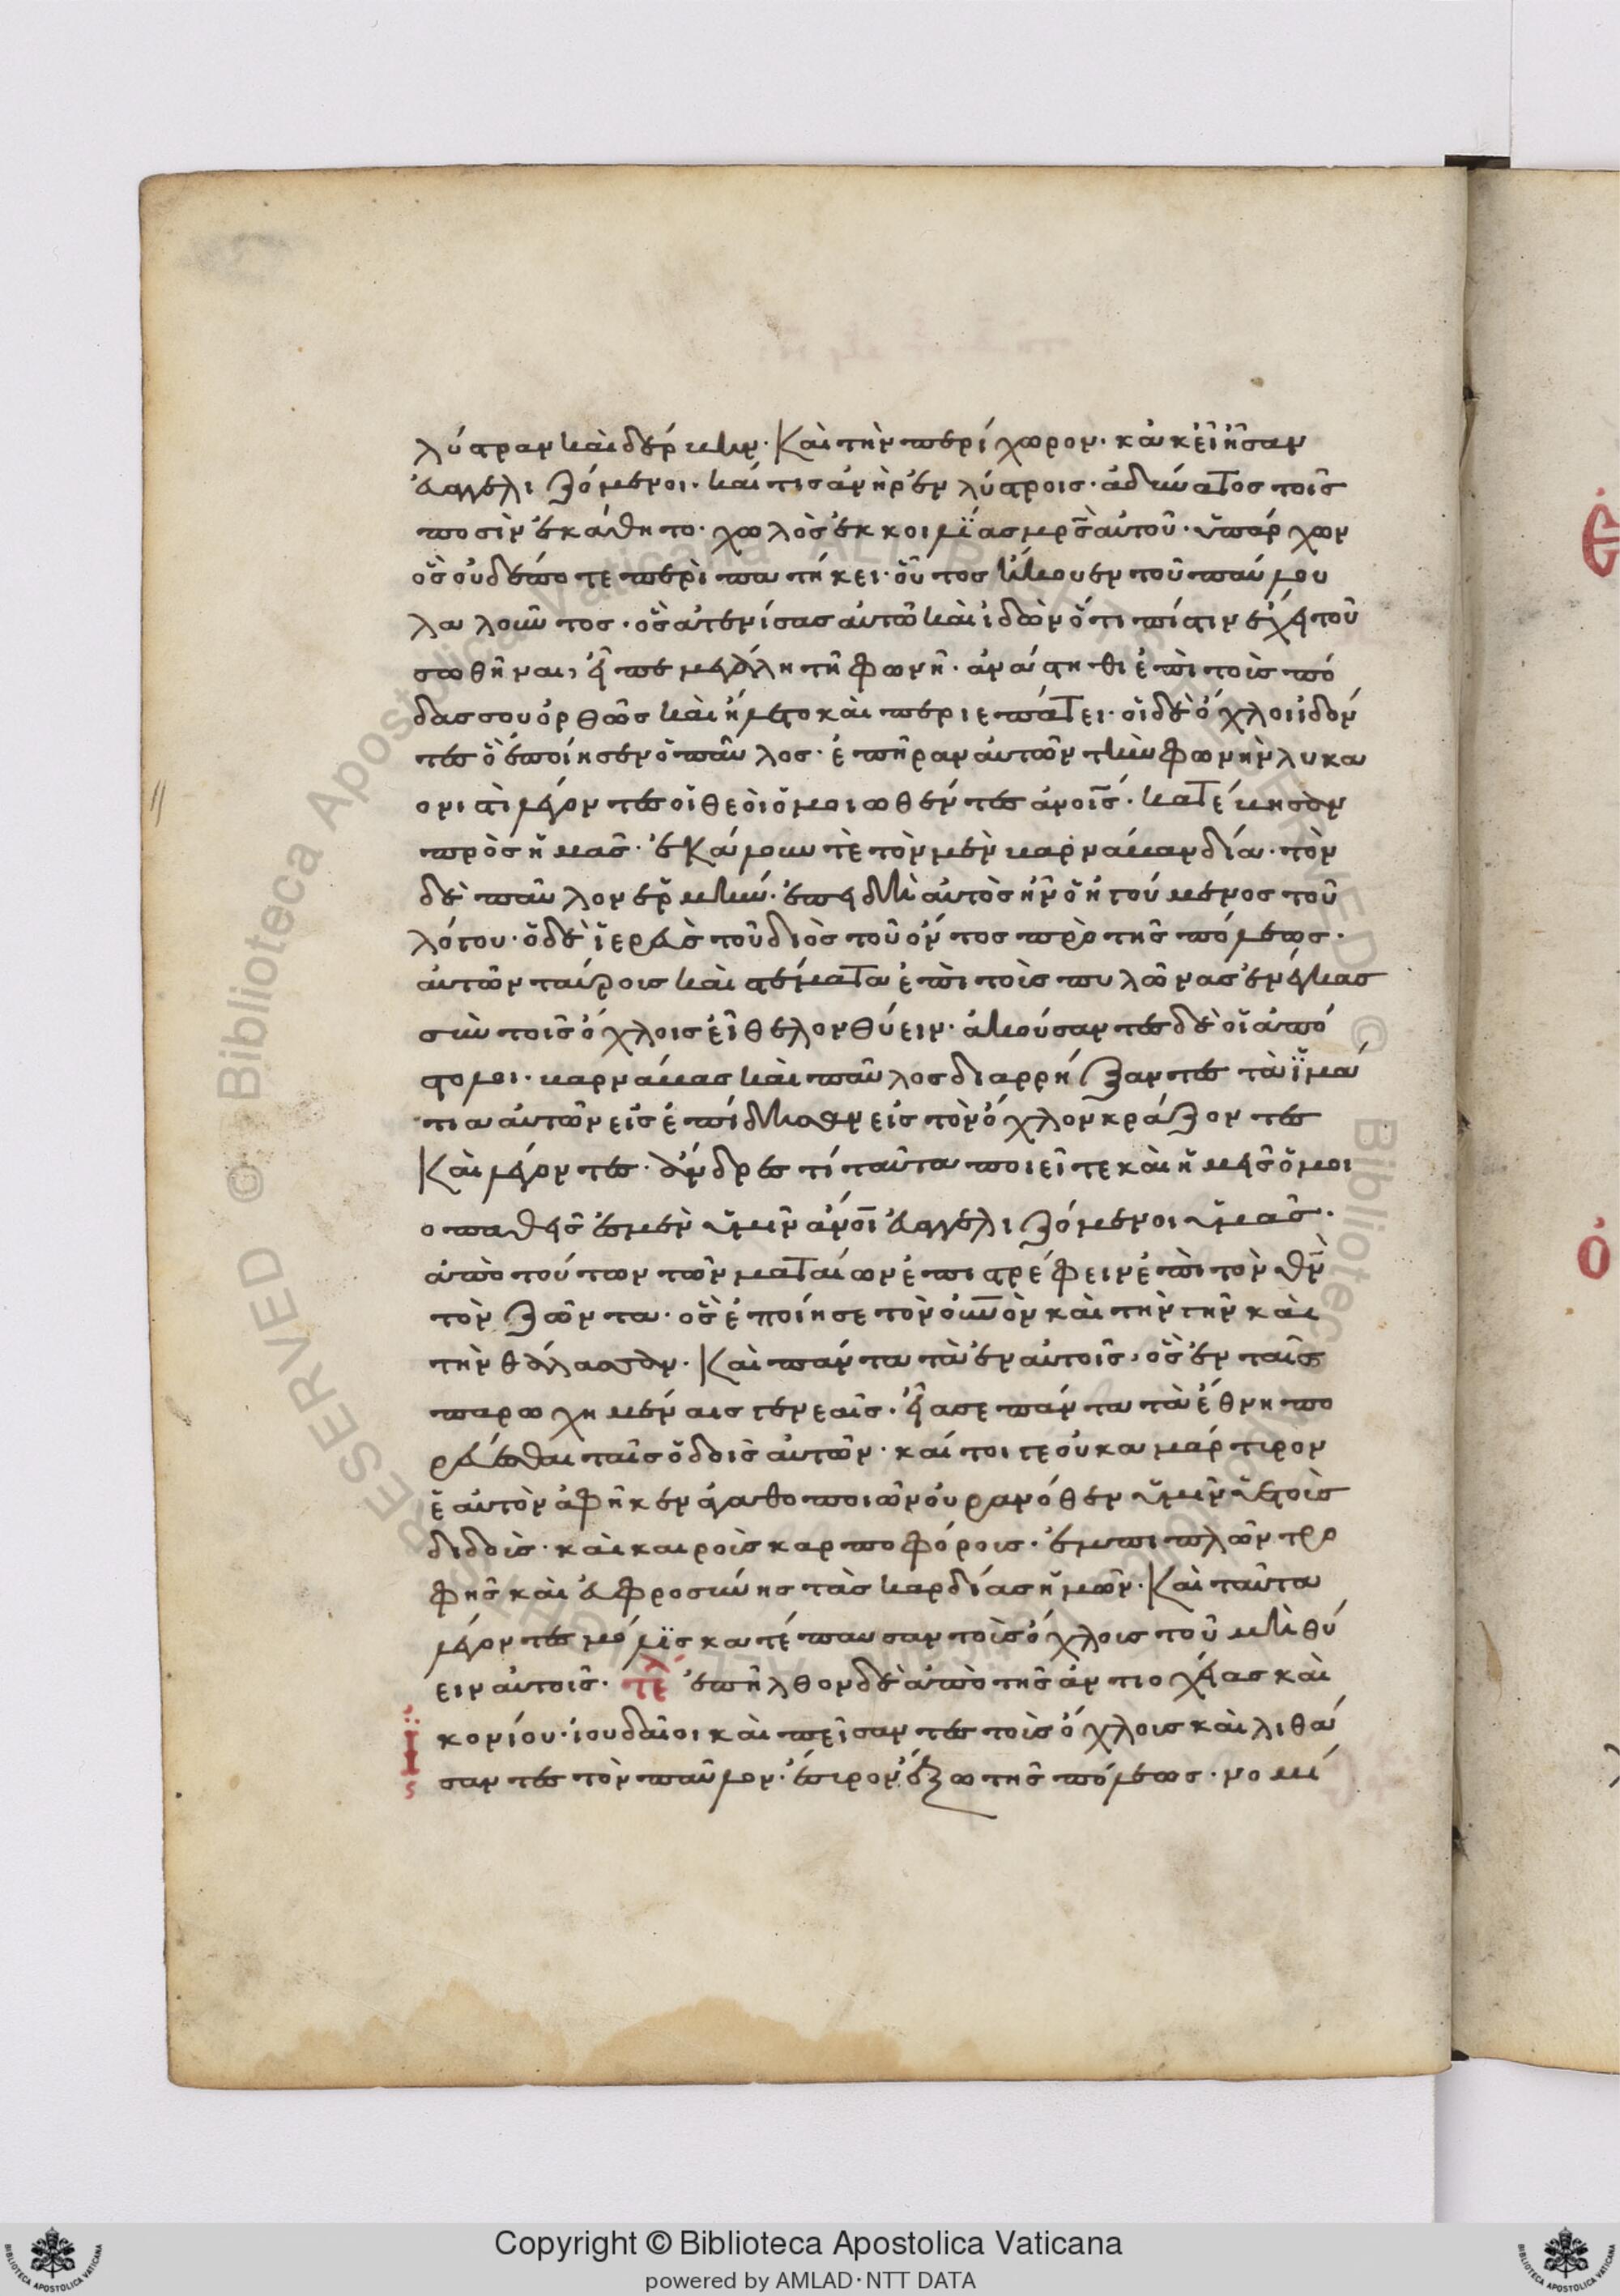 λύστραν καὶ δέρβην. Καὶ τὴν περίχωρον. κἀκεῖ ἦσαν
εὐαγγελιζόμενοι. καί τις ἀνὴρ ἐν λύστροις. ἀδύνατος τοῖς
ποσὶν ἐκάθητο. χωλὸς ἐκ κοιλίας μρ̅ς αὐτοῦ. ὑπάρχων
ὃς οὐδέποτε περὶπατήκει. οὗτος ἤκουεν τοῦ παύλου
λαλοῦντος. ὃς ἀτενίσας αὐτῶ καὶ ἰδὼν ὅτι πίστιν ἔχει τοῦ
σωθῆναι, εἶπε μεγάλη τῆ φωνῆ. ἀνάστηθι ἐπὶ τοὺς πό
δας σου ὀρθῶς καὶ ἥλετο καὶ περιεπάτει. οἱ δὲ ὄχλοι ἰδόν
τες ὃ ἐποίησεν ὁ παῦλος. ἐπῆραν αὐτῶν τὴν φωνὴν λυκα
ονιστὶ λέγοντες οἱ θεοὶ ὁμοιωθέντες ἀνοις. κατέβησαν
πρὸς ἡμᾶς. ἐκάλουν τὲ τὸν μὲν βαρνάβαν δία. τὸν
δὲ παῦλον ἑρμήν. ἐπειδὴ αὐτὸς ἦν ὁ ἡγούμενος τοῦ
λόγου. ὁ δὲ ἱερεὺς τοῦ διὸς τοῦ ὄντος πρὸ τῆς πόλεως.
αὐτῶν ταύρους καὶ στέματα ἐπὶ τοὺς πυλῶνας ἐνέγκας
σὺν τοῖς ὄχλοις εἴθελον θύειν. ἀκούσαντες δὲ οἱ ἀπό
στολοι. βαρνάβας καὶ παῦλος διαρρήξαντες τὰ ἱμά
τια αὐτῶν εἰσἐπίδησαν εἰς τὸν ὄχλον κράζοντες
Καὶ λέγοντες. ἄνδρες τί ταῦτα ποιεῖτε καὶ ἡμεῖς ὁμοι
οπαθεῖς ἐσμὲν ὑμῖν ἄνοι εὐαγγελιζόμενοι ὑμᾶς.
ἀπὸ τούτων τῶν ματαίων ἐπιστρέφειν ἐπὶ τὸν θν̅
τὸν ζῶντα. ὃς ἐποίησε τὸν οὐν̅ον καὶ τὴν γῆν καὶ
τὴν θάλασσαν. Καὶ πάντα τὰ ἐν αὐτοῖς, ὃς ἐν ταῖς
παρωχημέναις γενεαῖς. εἴασε πάντα τὰ ἔθνη πο
ρεύεσθαι ταῖς ὁδοῖς αὐτῶν. καί τοι γε οὐκ αμάρτιρον
ἑαυτὸν ἀφῆκεν ἀγαθοποιῶν οὐρανόθεν ὑμῖν ὑετοὺς
διδοὺς. καὶ καιροὺς καρποφόρους. ἐμπιπλῶν τρο
φῆς καὶ εὐφροσύνης τὰς καρδίας ἡμῶν. Καὶ ταῦτα
λέγοντες μόλϊς κατέπαυσαν τοὺς ὄχλους τοῦ μὴ θύ
ειν αὐτοῖς. τε ἐπῆλθον δὲ ἀπὸ τῆς ἀντιοχείας καὶ
ἰκονίου. ἰουδαῖοι καὶ πεῖσαντες τοὺς ὄχλους καὶ λιθά
σαντες τὸν παῦλον. ἔσιρον ἔξω τῆς πόλεως. νομί
Copyright © Biblioteca Apostolica Vaticana
powered by AMLAD·NTT DATA